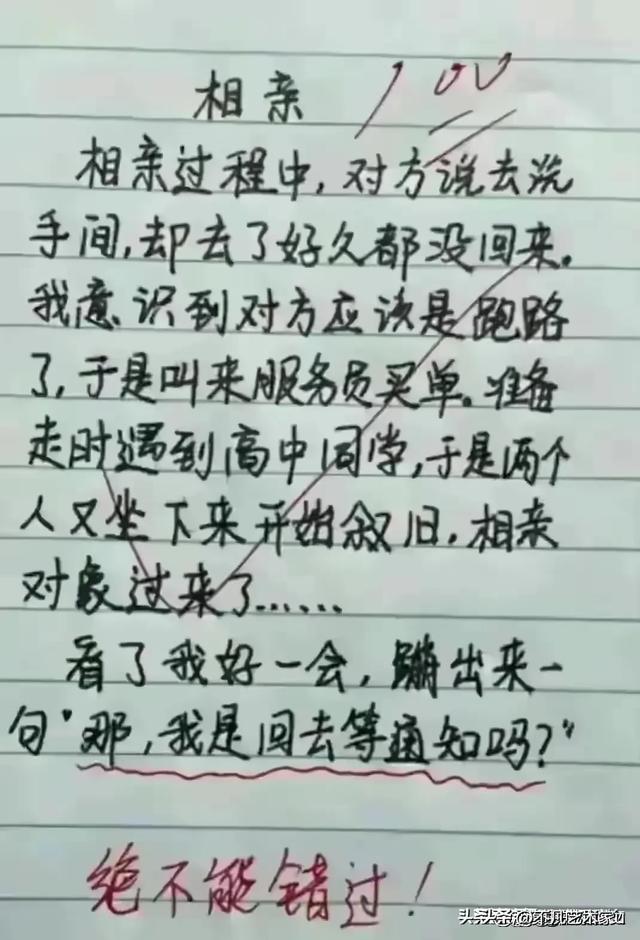 相亲 100
相亲过程中,对方说去洗
手间,却去了好久都没回来。
我意识到对方应该是跑路
了,于是叫来服务员买单。准备
走时遇到高中同学,于是两个
人又坐下来开始叙旧,相亲
对象过来了......
看了我好一会,蹦出来一
句"那,我是回去等通知吗?"
绝不能错过!
头条@不抓艺术家